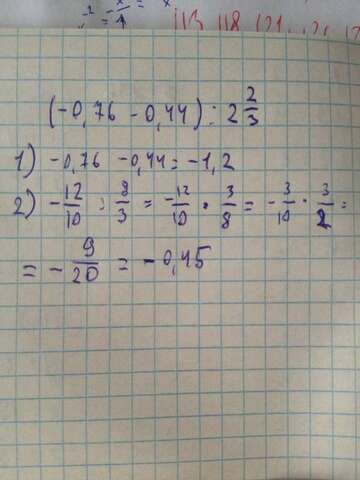 (-0,76 - 0,44) : 2 2/3
1) -0,76 - 0,44 = -1,2
2) -12/10 : 8/3 = -12/10 · 3/8 = -3/10 · 3/2 =
= -9/20 = -0,45